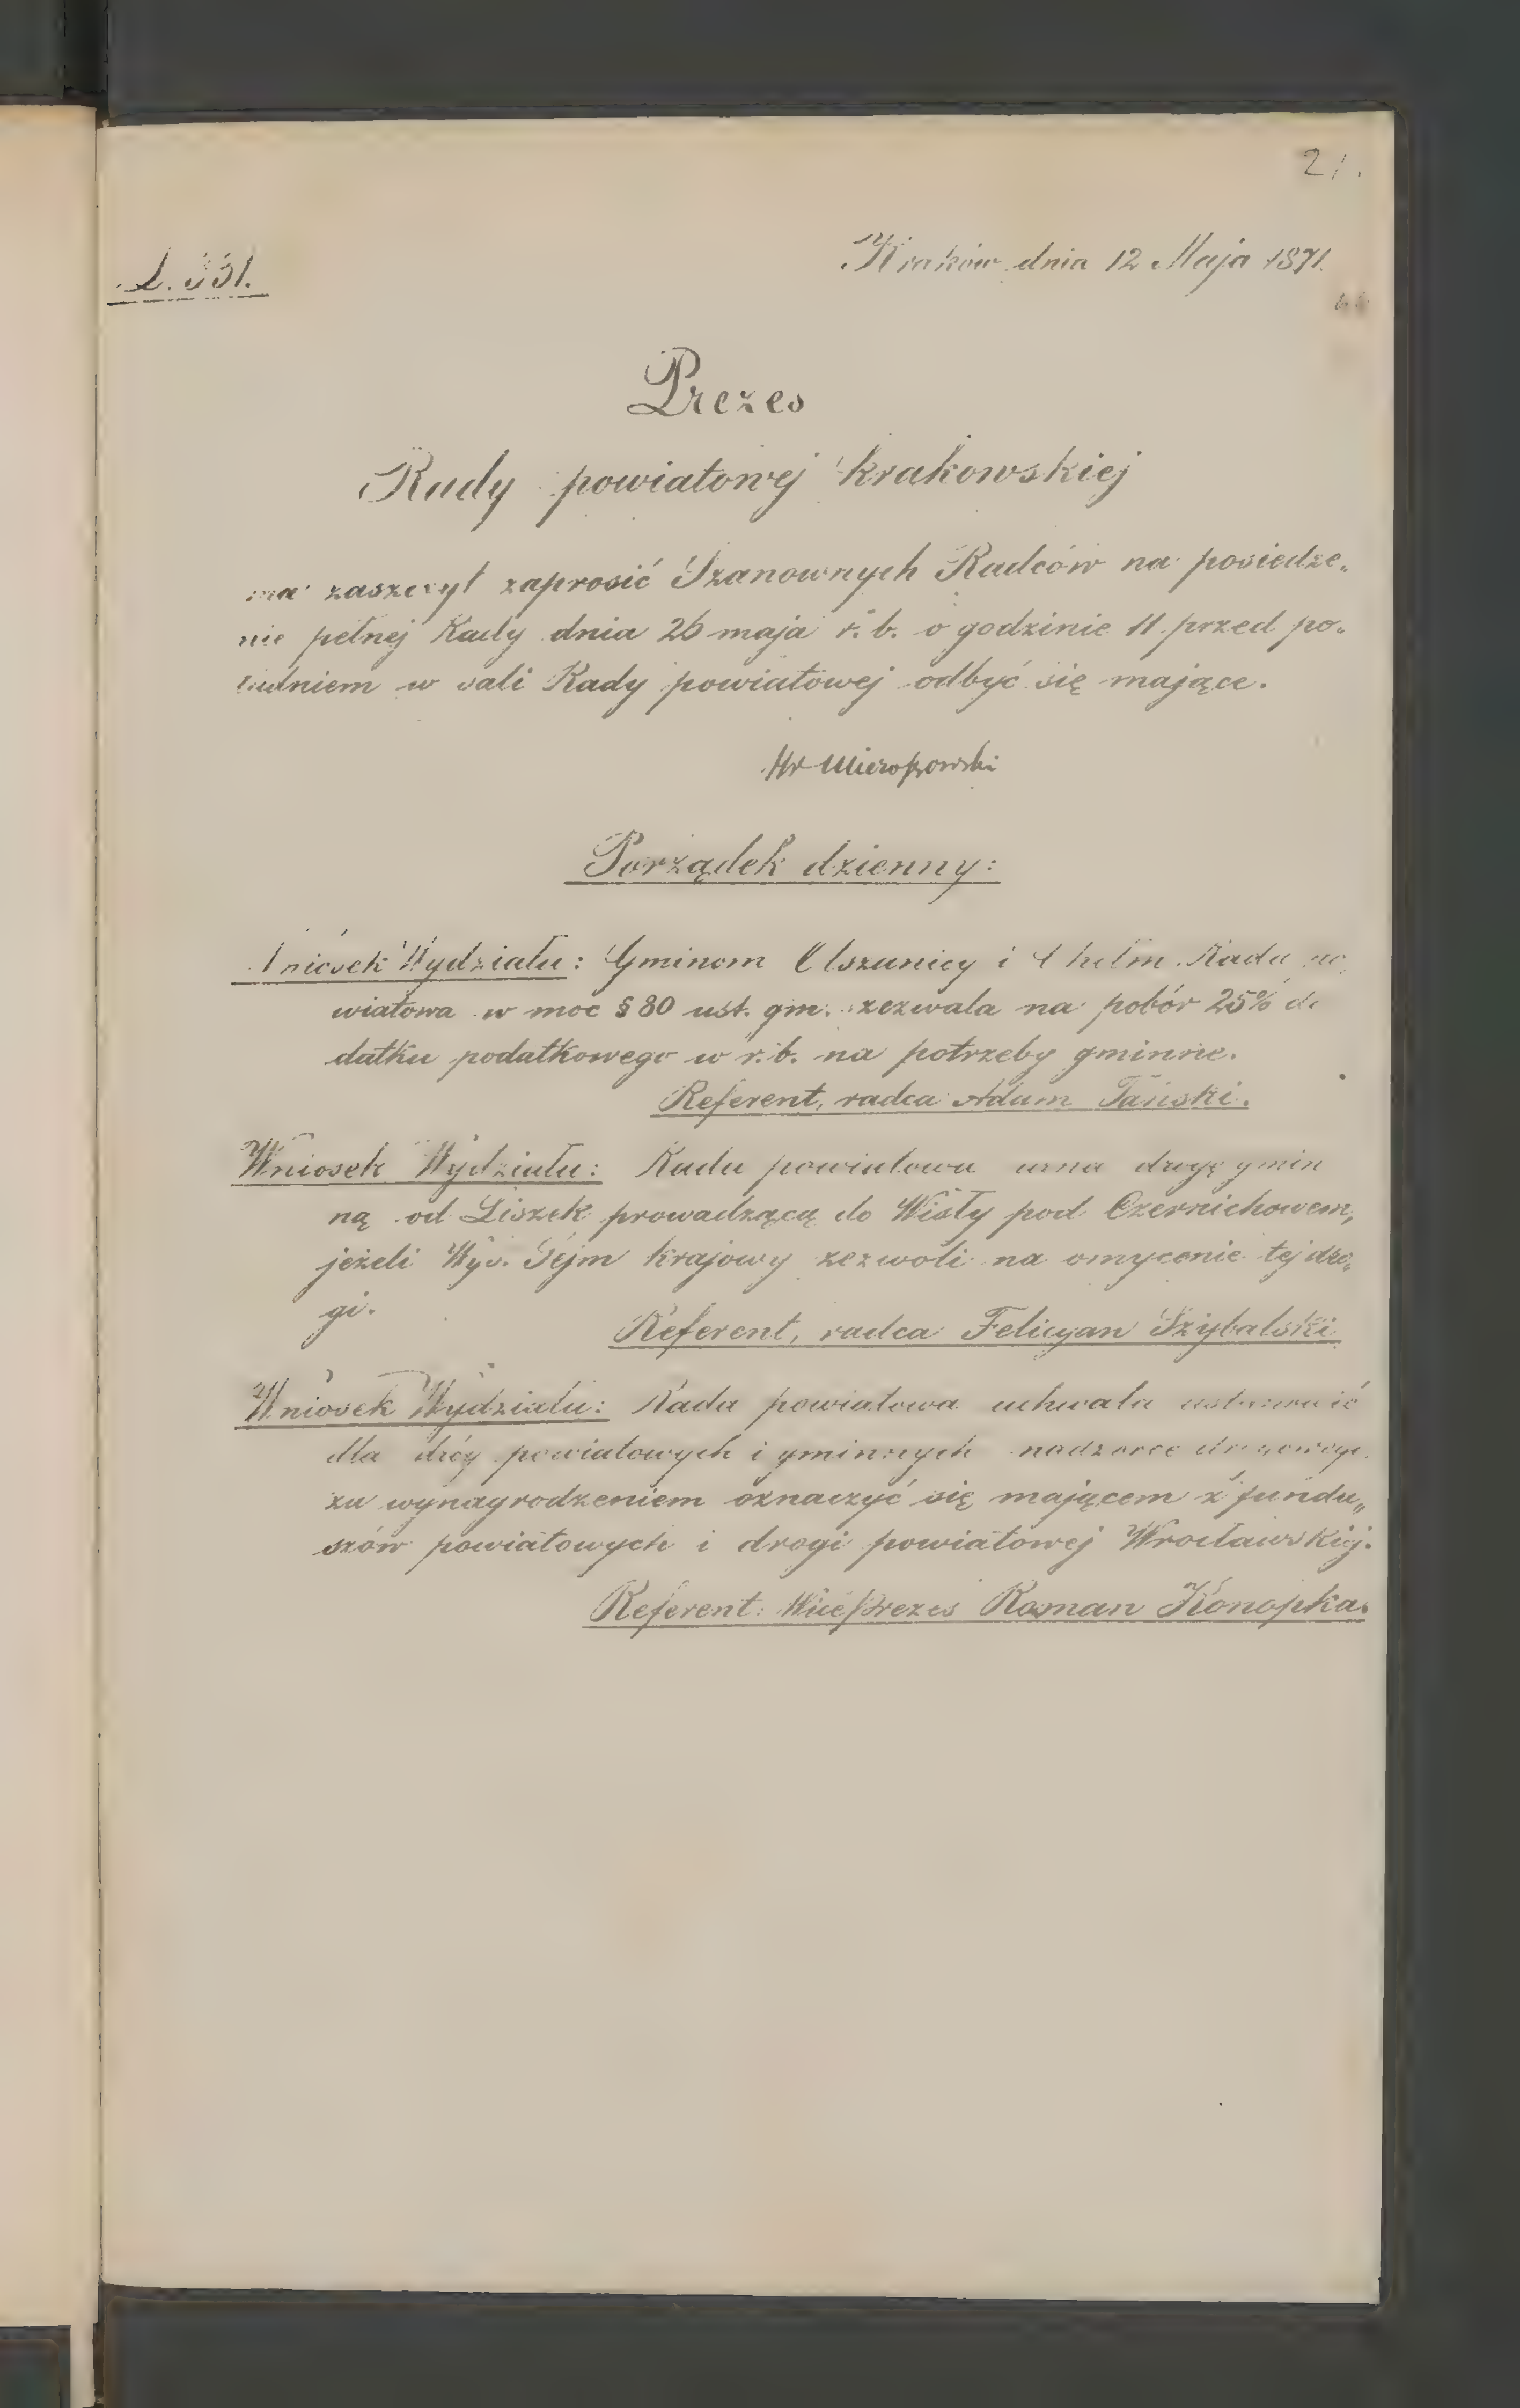 21.
Kraków dnia 12 Maja 1871.
L. 331.
Prezes
Rady powiatowej krakowskiej
ma zaszczyt zaprosić Szanownych Radców na posiedze„
nie pełnej Rady dnia 26 maja r. b. o godzinie 11 przed po„
łudniem w sali Rady powiatowej odbyć się mające.
Hr Mieroszowski
Porządek dzienny:
Wniosek Wydziału: Gminom Olszanicy i Chełm Rada po„
wiatowa w moc § 80 ust. gm. zezwala na pobór 25% do
datku podatkowego w r. b. na potrzeby gminne.
Referent, radca Adam Tański.
Wniosek Wydziału: Rada powiatowa uzna drogę gmin
ną od Liszek prowadzącą do Wisły pod Czernichowem,
jeżeli Wys. Sejm krajowy zezwoli na omycenie tej dro„
gi.
Referent, radca Felicyan Szybalski
Wniosek Wydziału: Rada powiatowa uchwala ustanowić
dla dróg powiatowych i gminnych nadzorcę drogowego
za wynagrodzeniem oznaczyć się mającem z fundu„
szów powiatowych i drogi powiatowej Wrocławskiej.
Referent: Wiceprezes Roman Konopka.